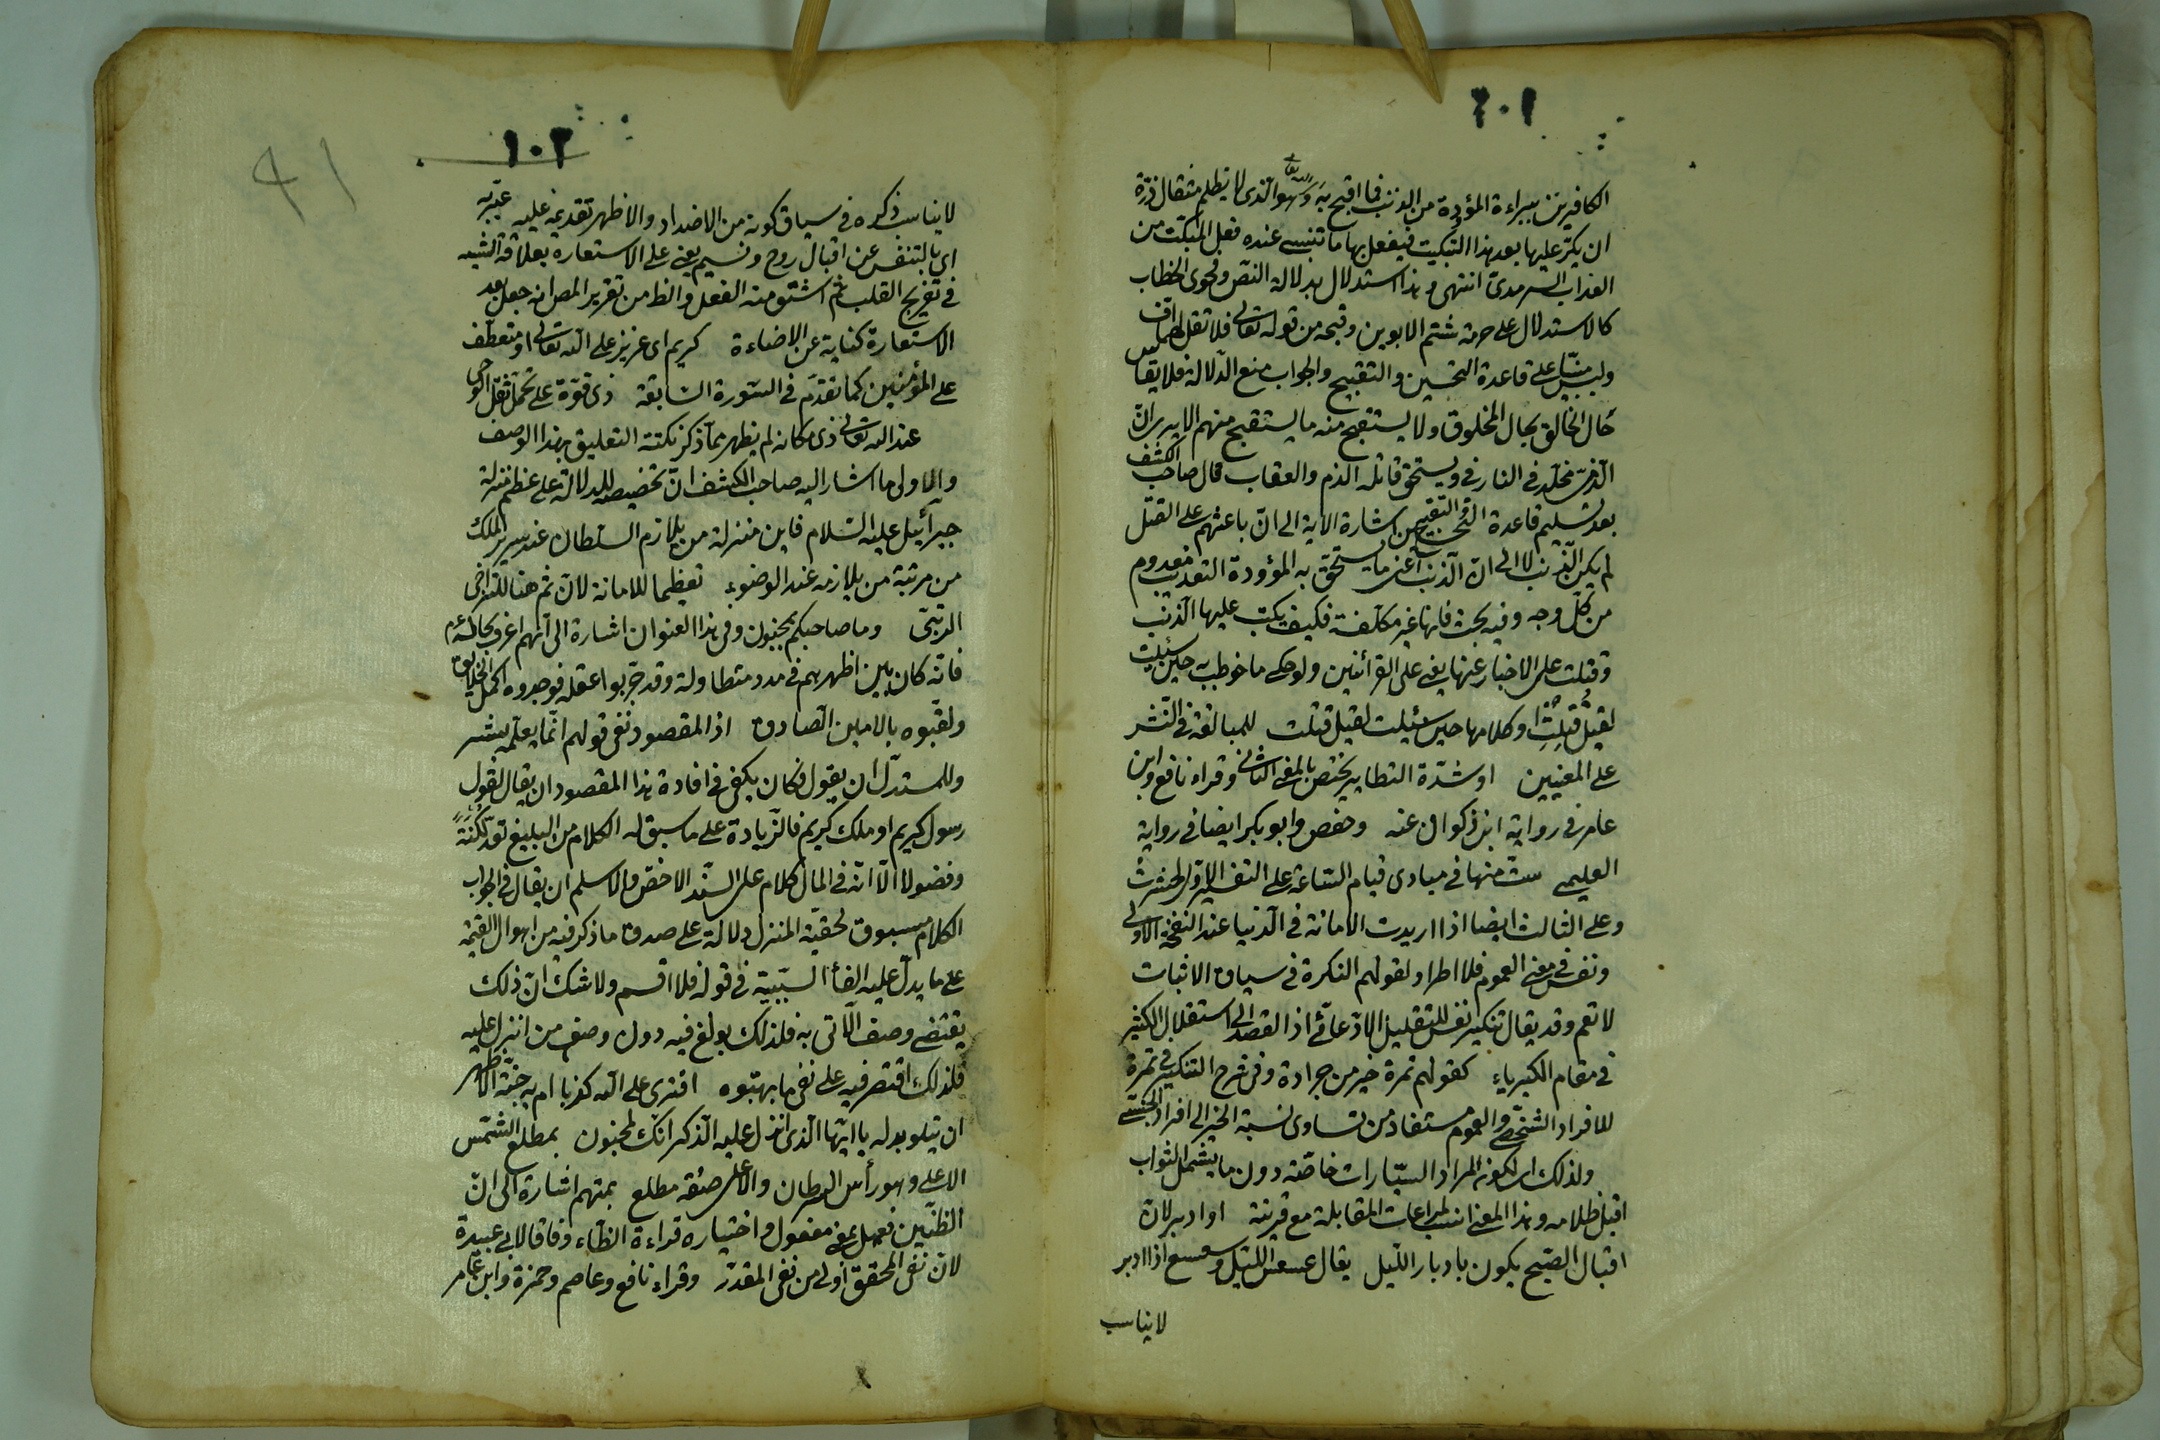 ١٠٢
الكافرين ببراءة المؤدة من الذنب فما اقبح به وهو الذى لا يظلم مثقال ذرة
ان يكر عليها بعد هذا التبكيت فيفعل بها ما تنسى عنده فعل المبكت من
العذاب السرمدى انتهى وهذا استدلال بدلالة النص وفحوى الخطاب
كالاستدلال على حرمة شتم الابوين وقبحه من قوله تعالى فلا تقل لهما اف
وليس مبنيا على قاعدة التحسين والتقبيح والجواب منع الدلالة فلا يقاس
حال الخالق بحال المخلوق ولا يستقبح منه ما يستقبح منهم الا يرى ان
الذمى مخلد فى النار ويستحق قاتله الذم والعقاب قال صاحب الكشف
بعد تسليم قاعدة التحسين والتقبيح اشارة الاية الى ان باعثهم على القتل
لم يكن الذنب لا الى ان الذنب اعنى ما تستحق به المؤودة التعذيب معدوم
من كل وجه وفيه بحث فانها غير مكلفة فكيف يكتب عليها الذنب
وقتلت على الاخبار عنها يعنى على القرائتين ولو حكى ما خوطب به حين سئلت
لقيل قتلت او كلامها حين سئلت لقيل قتلت للمبالغة فى النشر
على المعنيين او شدة التطاير يختص بالمعنى الثانى وقراء نافع وابن
عامر فى رواية ابن ذكوان عنه وحفص وابو بكر ايضا فى رواية
العليمى ست منها فى مبادى قيام الساعة على التفسير الاول لحشرت
وعلى الثالث ايضا اذا اريدت الامانة فى الدنيا عند النفخة الاولى
ونفس فى معنى العموم فلا اطراد لقولهم النكرة فى سياق الاثبات
لا تعم وقد يقال تنكير نفس للتقليل الادعائى اذ القصد الى استقلال الكثير
فى مقام الكبرياء كقولهم تمرة خير من جرادة وفى شرح التنكير فى تمرة
للافراد الشخصى والعموم مستفاد من تساوى نسبة الخير الى افراد الجنس
ولذلك اى لكونه المراد السيارات خاصة دون ما يشمل الثوابت
اقبل ظلامه وهذا المعنى انسب لمراعات المقابلة مع قرينة او ادبر لان
اقبال الصبح يكون بادبار الليل يقال عسعس الليل وسعسع اذا ادبر
لا يناسب
١٠٣
٩١
لا يناسب ذكره فى سياق كونه من الاضداد والاظهر تقديمه عليه عبر به
اى بالتنفس عن اقبال روح ونسيم يعنى على الاستعارة بعلاقة التشبيه
فى تفريج القلب ثم اشتق منه الفعل والظ من تقرير المص انه جعل بعد
الاستعارة كناية عن الاضاءة كريم اى عزيز على الله تعالى او متعطف
على المؤمنين كما تقدم فى السورة السابقة ذى قوة على تحمل ثقل الوحى
عند الله تعالى ذى مكانة لم يظهر مما ذكر نكتة التعليق بهذا الوصف
والاولى ما اشار اليه صاحب الكشف ان تخصيصه للدلالة على عظم منزلة
جبرائيل عليه السلام فاين منزلة من يلازم السلطان عند سرير الملك
من مرتبة من يلازمه عند الوضوء تعظيما للامانة لان ثم هنا للتراخى
الرتبى وما صاحبكم بمجنون وفى هذا العنوان اشارة الى انهم اعرف بحاله
فانه كان بين اظهرهم فى مدد متطاولة وقد جربوا عقله فوجدوه اكمل الخلايق
ولقبوه بالامين الصادق اذ المقصود نفى قولهم انما يعلمه بشر
وللمستدل ان يقول فكان يكفى فى افادة هذا المقصود ان يقال لقول
رسول كريم او ملك كريم فالزيادة على ما سيق له الكلام من البليغ تعد لكنة
وفضولا الا انه فى المال كلام على السند الاخص والاسلم ان يقال فى الجواب
الكلام مسبوق لحقية المنزل دلالة على صدق ما ذكر فيه من اهوال القيمة
على ما يدل عليه الفاء السببية فى قوله فلا اقسم ولا شك ان ذلك
يقتضى وصف الاتى به فلذلك بولغ فيه دون وصف من انزل عليه
فلذلك اقتصر فيه على نفى ما بهتوه افترى على الله كذبا ام به جنة الاظهر
ان يتلو بدله يا ايها الذى نزل عليه الذكر انك لمجنون بمطلع الشمس
الاعلى وهو رأس السرطان والاعلى صفة مطلع بمتهم اشارة الى ان
الظنين فعيل بمعنى مفعول واختياره قراءة الظاء وفاقا لابى عبيدة
لان نفى المحقق اولى من نفى المقدر وقراء نافع وعاصم وحمزة وابن عامر